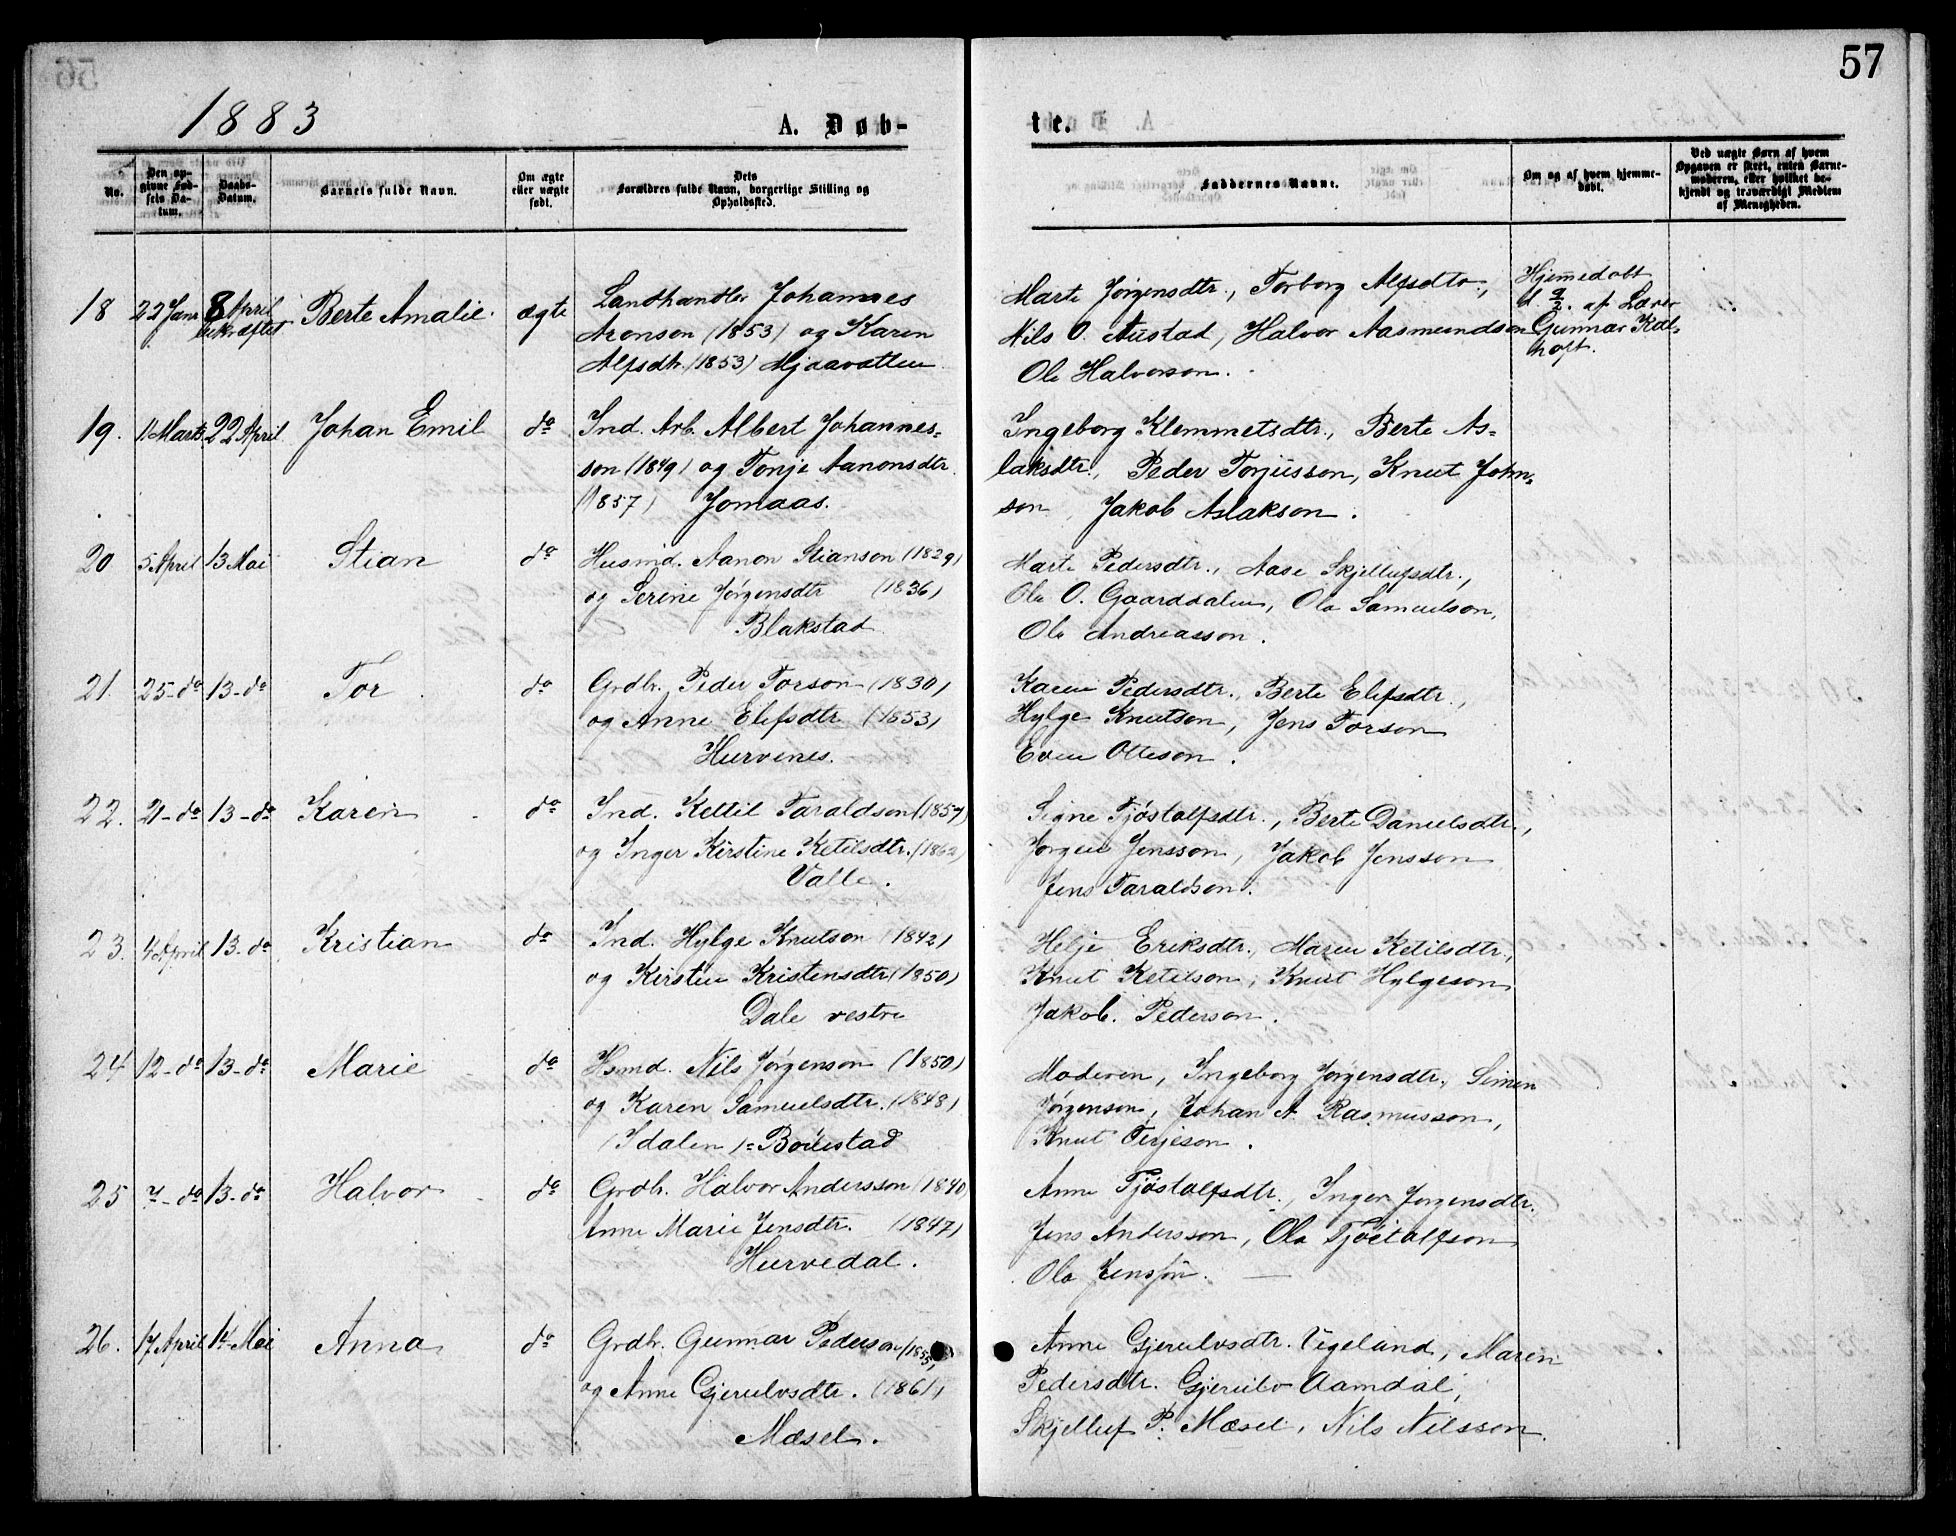 57
1883
A. Døb-
te.
No.
Den op-
givne Fød-
sels Da-
tum.
Daabs-
Datum.
Barnets fulde Navn.
Om ægte
eller uægte
født.
Dets
Forældres fulde Navn, borgerlige Stilling og
Opholdssted.
Faddernes Navne.
Om og af hvem hjemme-
døbt.
Ved uægte Børn af hvem
Opgaven er skeet, enten Barne-
moderen, eller hvilket be-
kjendt og troværdigt Medlem
af Menigheden.
18 22 Janr 8 April bekræftet Berte Amalie. ægte
Landhandler Johannes
Aronson (1853) og Karen
Alfsdtr. (1853) Mjaavatten
Marte Jørgensdtr., Torborg Alfsdtr.,
Nils O. Austad, Halvor Aasmundson
Ole Halvorson.
Hjemmedøbt
d. 9/2. af Lærer
Gunnar Kal-
hoft.
19. 11 Marts 22 April Johan Emil do
Ind. Arb. Albert Johannes-
son (1849) og Tonje Aanonsdtr.
(1857) Jomaas.
Ingeborg Klemmetsdtr., Berte As-
laksdtr., Peder Torjusson, Knut John-
son, Jakob Aslakson.
20 5 April 13 Mai Stian do
Husmd. Aanon Stianson (1829)
og Serine Jørgensdtr (1836)
Blakstad
Marte Pedersdtr., Aase Skjellufsdtr.,
Ole O. Gaarddalen, Ola Samuelson,
Ole Andreasson.
21. 25-do 13-do Tor do
Grdbr. Peder Torson (1830)
og Anne Elefsdtr. (1853)
Hurvenes.
Karen Pedersdtr., Berte Elefsdtr.,
Hylge Knutson, Jens Torson
Even Otteson.
22. 21-do 13-do Karen do
Ind. Kettil Taraldson (1857)
og Inger Kirstine Ketilsdtr. (1862)
Valle.
Signe Tjøstolfsdtr., Berte Danielsdtr.,
Jørgen Jensson, Jakob Jensson
Jens Taraldson.
23. 4 April 13-do Kristian do
Ind. Hylge Knutson (1842)
og Kirsten Kristensdtr (1850)
Dale vestre
Helje Eriksdtr., Maren Ketilsdtr,
Knut Ketilson, Knut Hylgeson
Jakob. Pederson.
24 12-do 13-do Marie do
Hsmd. Nils Jørgenson (1850)
og Karen Samuelsdtr. (1848)
(Idalen) = Bøilestad
Moderen, Ingeborg Jørgensdtr. Simen
Jørgenson, Johan A. Rasmusson,
Knut Terjeson.
25 7-do 13-do Halvor do
Grdbr. Halvor Andersson (1840)
Anne Marie Jensdtr. (1847)
Hurvedal.
Anne Tjøstolfsdtr., Inger Jørgensdtr.
Jens Andersson, Ola Tjøstolfson,
Ola Jensson.
26. 17 April 14 Mai Anna do
Grdbr. Gunnar Pederson (1855)
og Anne Gjerulvsdtr. (1861)
Mæsel.
Anne Gjerulvsdtr. Vigeland, Maren
Pedersdtr. Gjerulv Aamdal,
Skjelluf P. Mæsel, Nils Nilsson.